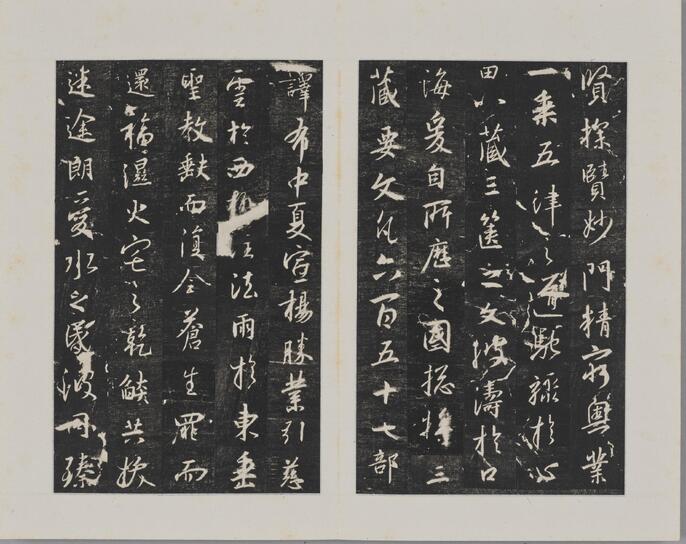 賢探賾妙門精窮奧業
一乘五律之道馳驟於心
田八藏三篋之文波濤於口
海爰自所歷之國總將三
藏要文凡六百五十七部
譯布中夏宣楊勝業引慈
雲於西極注法雨於東垂
聖教缺而復全蒼生罪而
還福濕火宅之乾焰共拔
迷途朗愛水之昏波同臻